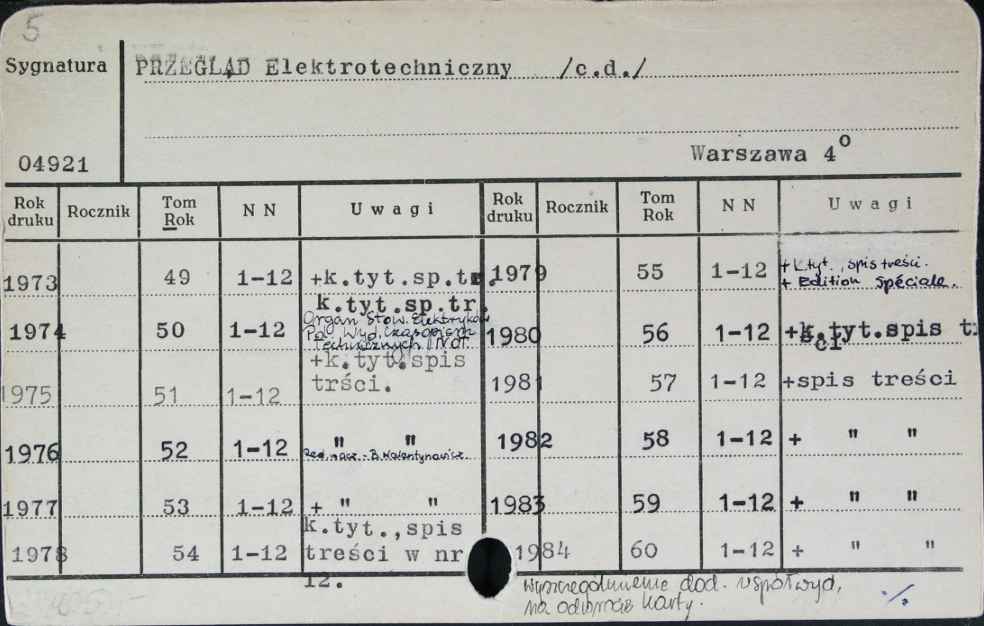 5
Sygnatura PRZEGLĄD Elektrotechniczny /c.d./
04921 Warszawa 4º
Rok druku Rocznik Tom Rok N N Uwagi Rok druku Rocznik Tom Rok N N Uwagi
1973 49 1-12 +k.tyt.sp.tr.
1974 50 1-12 k.tyt.sp.tr.
Organ Stow. Elektryków
Pol. Wyd. Czasopism
Technicznych NOT.
1975 51 1-12 +k.tyt.spis
trści.
1976 52 1-12 " "
Red. nacz. B. Walentynowicz
1977 53 1-12 + " "
1978 54 1-12 k.tyt.,spis
treści w nr
12.
1979 55 1-12 + k.tyt., spis treści.
+ Edition Spéciale.
1980 56 1-12 +k.tyt.spis
1981 57 1-12 +spis treści
1982 58 1-12 + " "
1983 59 1-12 + " "
1984 60 1-12 + " "
wyszczególnienie dod. współwyd,
na odwrocie karty.
./.